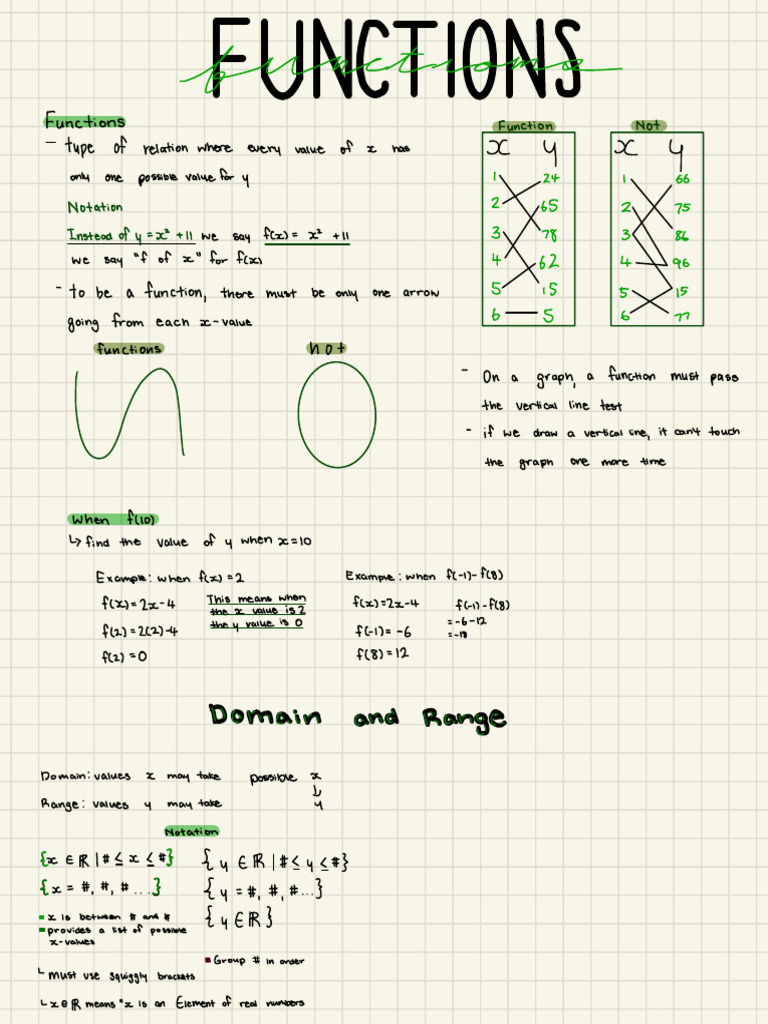 FUNCTIONS
functions
Functions
- type of relation where every value of x has
only one possible value for y
Notation
Instead of y = x² + 11 we say f(x) = x² + 11
we say "f of x" for f(x)
- to be a function, there must be only one arrow
going from each x-value
Function
x y
1 24
2 65
3 78
4 62
5 15
6 5
Not
x y
1 66
2 75
3 86
4 96
5 15
6 77
functions
not
- On a graph, a function must pass
the vertical line test
- if we draw a vertical line, it can't touch
the graph one more time
When f(10)
↳ find the value of y when x=10
Example: when f(x) = 2
f(x) = 2x-4
f(2) = 2(2)-4
f(2) = 0
This means when
the x value is 2
the y value is 0
Example: when f(-1)-f(8)
f(x) = 2x-4
f(-1) = -6
f(8) = 12
f(-1)-f(8)
= -6-12
= -18
Domain and Range
Domain: values x may take
Range: values y may take
possible x
↳
y
Notation
{x ∈ ℝ | # ≤ x ≤ #}
{x = #, #, # ...}
{y ∈ ℝ | # ≤ y ≤ #}
{y = #, #, # ...}
{y ∈ ℝ}
▪ x is between # and #
▪ provides a list of possible
x-values
▪ Group # in order
└ must use squiggly brackets
└ x∈ℝ means "x is an Element of real numbers